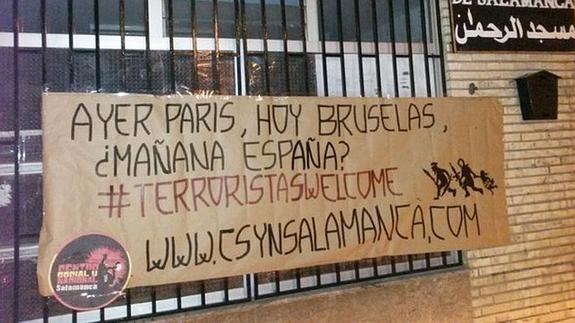 DE SALAMANCA
مسجد الرحمان
AYER PARIS, HOY BRUSELAS,
¿MAÑANA ESPAÑA?
#TERRORISTASWELCOME
WWW.CSYNSALAMANCA.COM
CENTRO
SOCIAL Y
NACIONAL
Salamanca